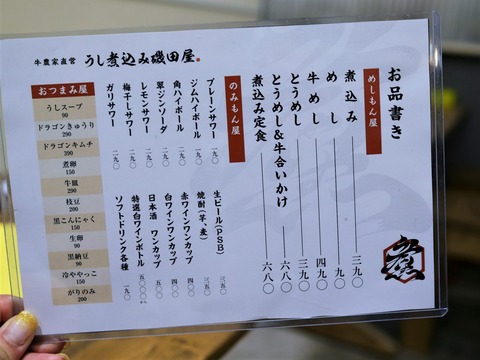 牛農家直営 うし煮込み磯田屋
お品書き
めしもん屋
煮込み 三九〇
めし 九〇
牛めし 四九〇
とうめし 三九〇
とうめし&牛合いかけ 六八〇
煮込み定食 六八〇
のみもん屋
プレーンサワー 一九〇
ジムハイボール 一九〇
角ハイボール 二九〇
翠ジンソーダ 二九〇
レモンサワー 二九〇
梅干しサワー 二九〇
ガリサワー 二九〇
生ビール(PSB) 三五〇
焼酎(芋、麦) 三五〇
赤ワインワンカップ 四〇〇
白ワインワンカップ 四〇〇
日本酒 ワンカップ
特選白ワインボトル 五〇〇〇
ソフトドリンク各種 一九〇
おつまみ屋
うしスープ
90
ドラゴンきゅうり
290
ドラゴンキムチ
390
煮卵
150
牛皿
290
枝豆
200
黒こんにゃく
150
生卵
90
黒納豆
90
冷ややっこ
150
がりのみ
200